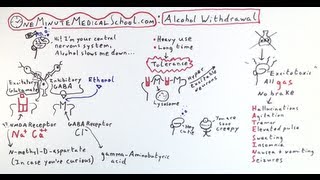 OneMinuteMedicalSchool.com: Alcohol Withdrawal
Hi! I'm your central
nervous system,
Alcohol slows me down...
Excitatory
Glutamate
Inhibitory
GABA
Ethanol
NMDA Receptor
Na+ Ca2+
GABA Receptor
Cl-
N-methyl-D-aspartate
(In case you're curious)
gamma-Aminobutyric
acid
• Heavy use
• Long time
Tolerance
Hyper
Excitable
Neurons
Lysosome
You are
soooo
creepy
Excitatosis
All gas
No brake
Hallucinations
Agitation
Tremor
Elevated pulse
Sweating
Insomnia
Nausea + vomiting
Seizures